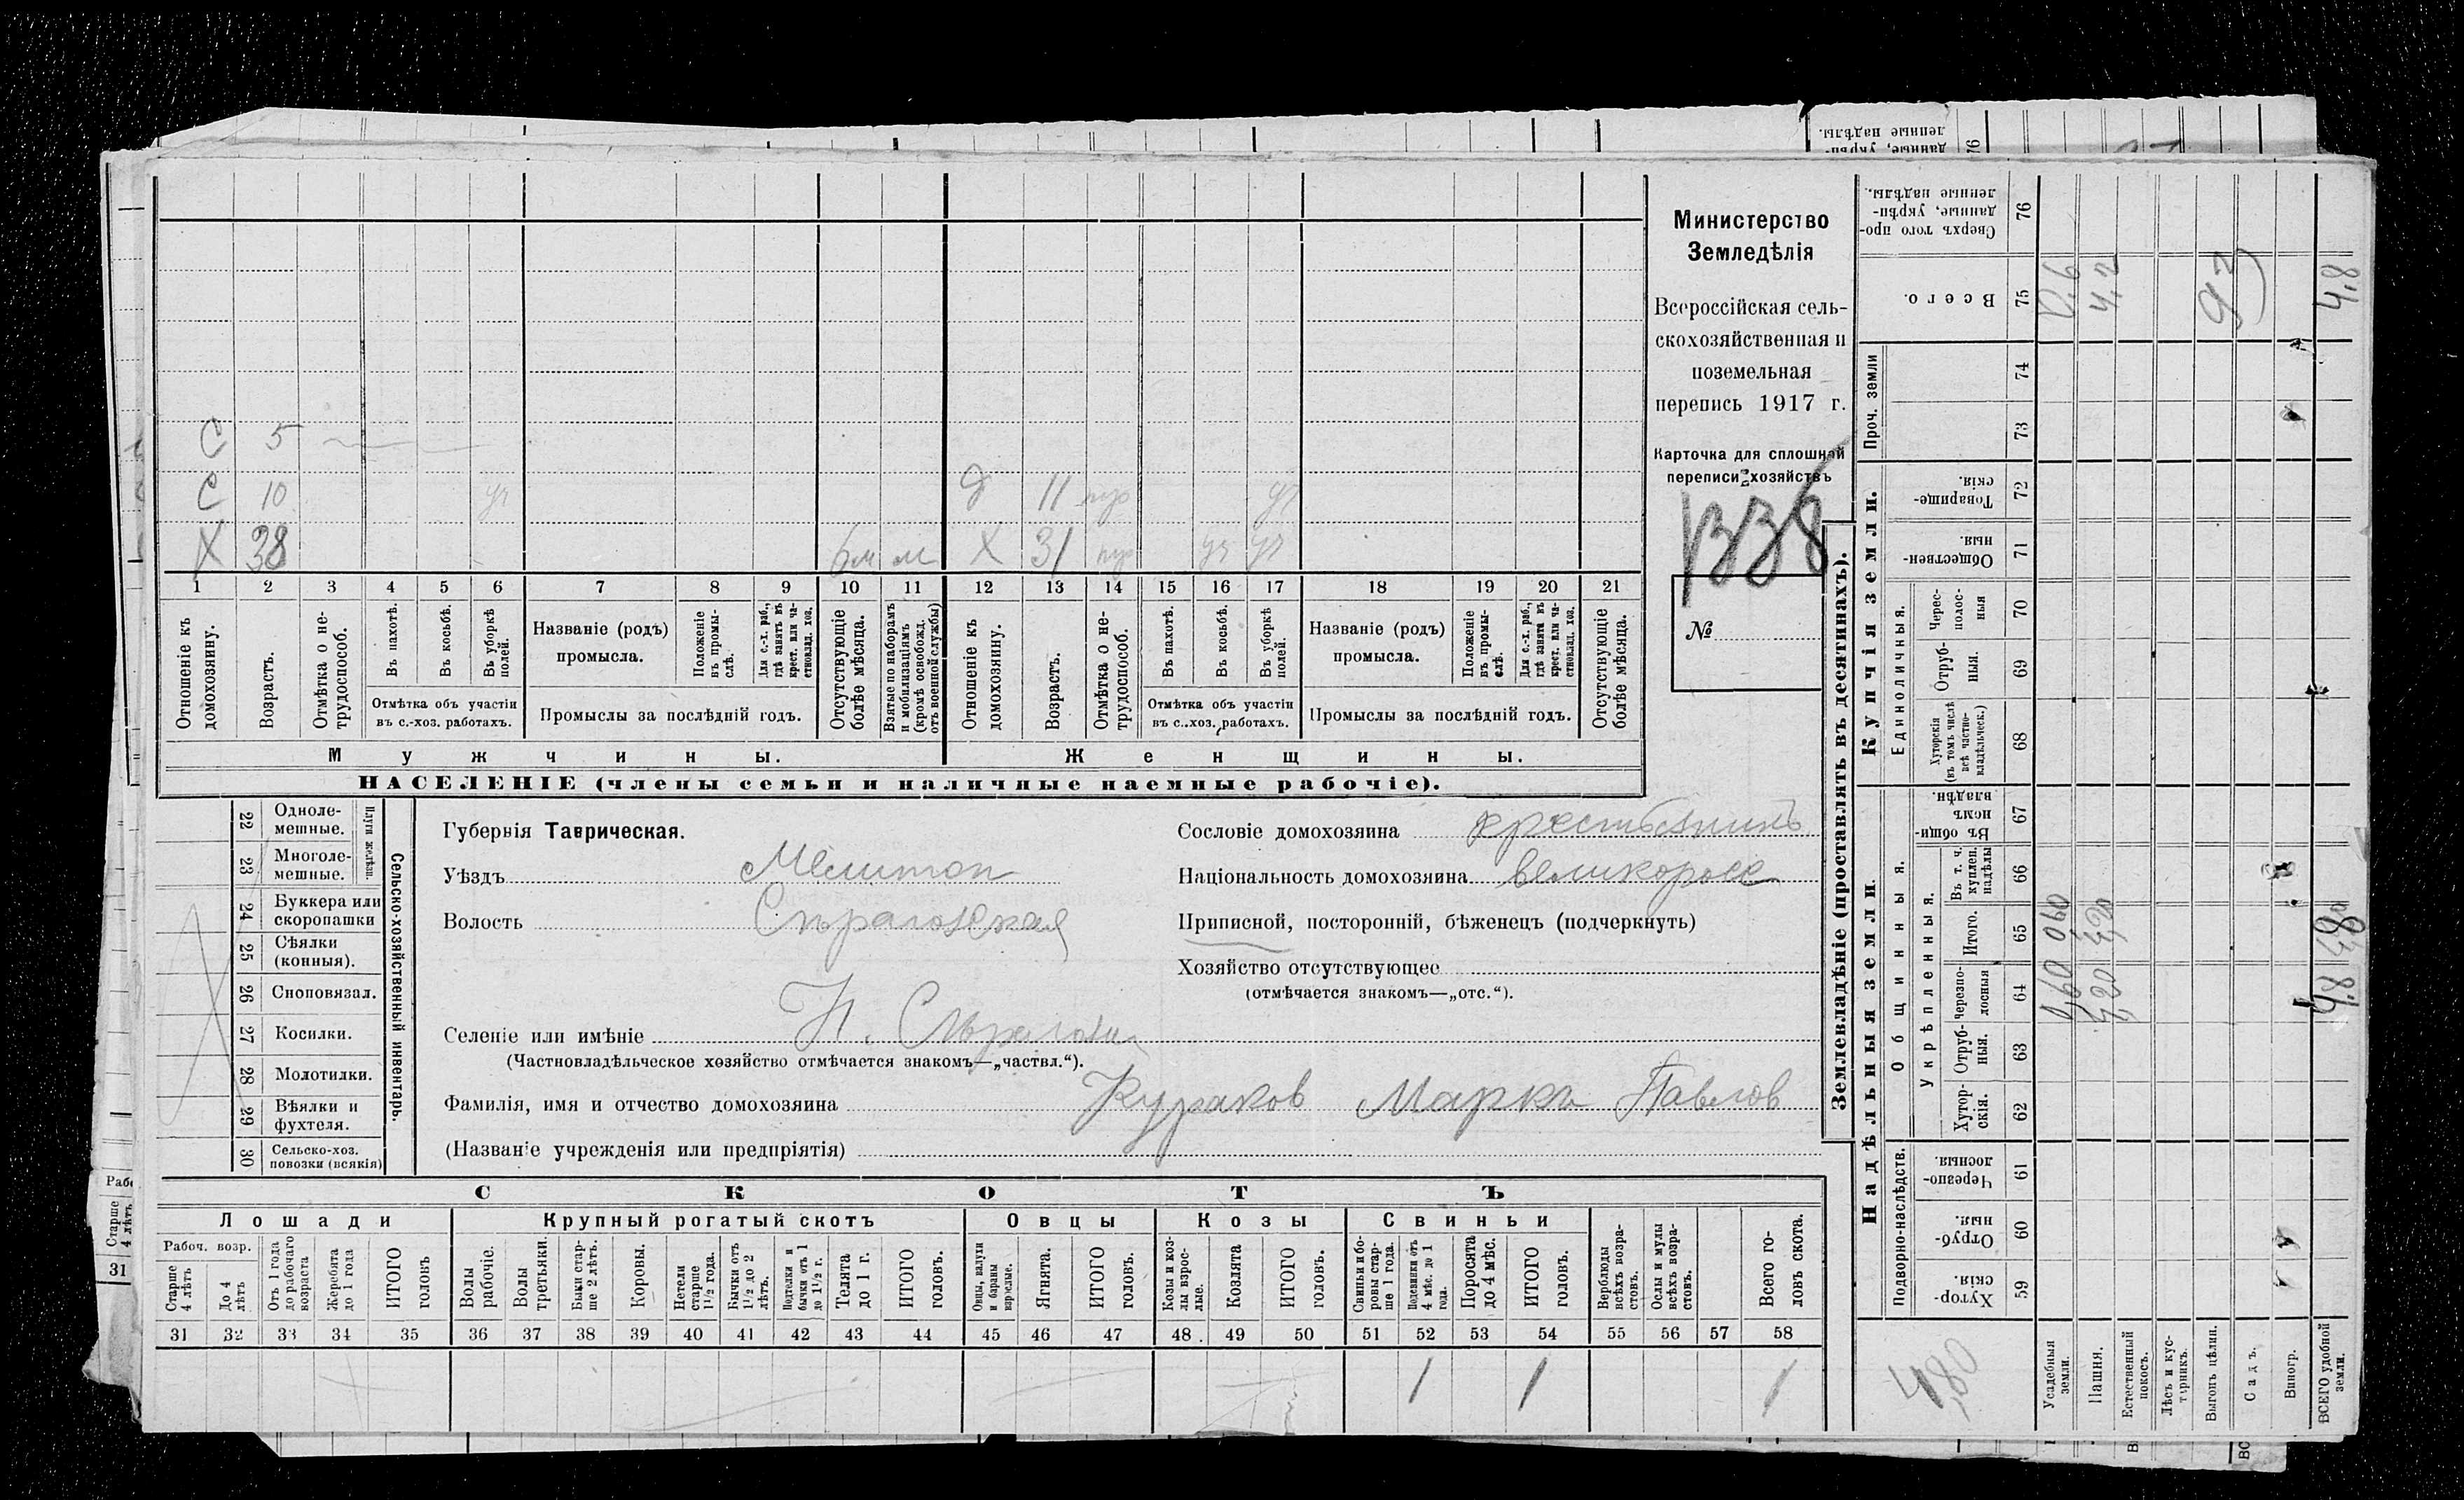 Министерство
Земледѣлія
Всероссійская сель-
скохозяйственная и
поземельная
перепись 1917 г.
Карточка для сплошной
переписи хозяйствъ
1338
№
С 5
С 10 уч Д 11 уч
Х 38 6м м Х 31 уч уч
1 2 3 4 5 6 7 8 9 10 11 12 13 14 15 16 17 18 19 20 21
Отношеніе къ домохозяину.
Возрастъ.
Отмѣтка о не-трудоспособ.
Въ пахотѣ.
Въ косьбѣ.
Въ уборкѣ полей.
Отмѣтка объ участіи
въ с.-хоз. работахъ.
Названіе (родъ)
промысла.
Положеніе въ промы-слѣ.
Для с.-х. раб., гдѣ занятъ въ крест. или ча-стновлад. хоз.
Промыслы за послѣдній годъ.
Отсутствующіе болѣе мѣсяца.
Взятые по наборамъ и мобилизаціямъ (кромѣ освобожд. отъ военной службы)
Отношеніе къ домохозяину.
Возрастъ.
Отмѣтка о не-трудоспособ.
Въ пахотѣ.
Въ косьбѣ.
Въ уборкѣ полей.
Отмѣтка объ участіи
въ с.-хоз. работахъ.
Названіе (родъ)
промысла.
Положеніе въ промы-слѣ.
Для с.-х. раб., гдѣ занята въ крест. или ча-стновлад. хоз.
Промыслы за послѣдній годъ.
Отсутствующіе болѣе мѣсяца.
Мужчины.
Женщины.
НАСЕЛЕНІЕ (члены семьи и наличные наемные рабочіе).
22 Одноле-мешные.
23 Многоле-мешные.
Плуги желѣзн.
24 Буккера или скоропашки
25 Сѣялки (конныя).
26 Сноповязал.
27 Косилки.
28 Молотилки.
29 Вѣялки и фухтеля.
30 Сельско-хоз. повозки (всякія)
Сельско-хозяйственный инвентарь.
Губернія Таврическая.
Уѣздъ Мелитоп
Волость
Селеніе или имѣніе Н.
(Частновладѣльческое хозяйство отмѣчается знакомъ—„частвл.“).
Фамилія, имя и отчество домохозяина Кураков Маркъ Павлов
(Названіе учрежденія или предпріятія)
Сословіе домохозяина крестьянинъ
Національность домохозяина великоросс
Приписной, посторонній, бѣженецъ (подчеркнуть)
Хозяйство отсутствующее
(отмѣчается знакомъ—„отс.“).
СКОТЪ
Лошади
Крупный рогатый скотъ
Овцы
Козы
Свиньи
Рабоч. возр.
Старше 4 лѣтъ
До 4 лѣтъ
Отъ 1 года до рабочаго возраста
Жеребята до 1 года
ИТОГО головъ
Волы рабочіе.
Волы третьяки.
Быки стар-ше 2 лѣтъ.
Коровы.
Нетели старше 1½ года.
Бычки отъ 1½ до 2 лѣтъ.
Подтелки и бычки отъ 1 до 1½ г.
Телята до 1 г.
ИТОГО головъ.
Овцы, валухи и бараны взрослые.
Ягнята.
ИТОГО головъ.
Козы и коз-лы взрос-лые.
Козлята
ИТОГО головъ.
Свиньи и бо-ровы стар-ше 1 года.
Подсвинки отъ 4 мѣс. до 1 года.
Поросята до 4 мѣс.
ИТОГО головъ.
Верблюды всѣхъ возра-стовъ.
Ослы и мулы всѣхъ возра-стовъ.
Всего го-ловъ скота.
31 32 33 34 35 36 37 38 39 40 41 42 43 44 45 46 47 48 49 50 51 52 53 54 55 56 57 58
1 1 1
Землевладѣніе (проставлять въ десятинахъ).
Надѣльныя земли.
Купчія земли.
Проч. земли
Подворно-наслѣдств.
Общинныя.
Укрѣпленныя.
Единоличныя.
59 Хутор-скія.
60 Отруб-ныя.
61 Черезпо-лосныя.
62 Хутор-скія.
63 Отруб-ныя.
64 черезпо-лосныя
65 Итого.
66 Въ т. ч. куплен. надѣлы
67 Въ общи-номъ владѣн.
68 Хуторскія (въ томъ числѣ всѣ частно-владѣльческ.)
69 Отруб-ныя.
70 Черес-полос-ныя
71 Обществен-ныя.
72 Товарище-скія.
73
74
75 Всего.
76 Сверхъ того про-данные, укрѣп-ленные надѣлы.
Усадебныя земли. 0,60 060 0,6
Пашня. 4,20 4,20 4,2
Естественный покосъ.
Лѣсъ и кус-тарникъ.
Выгонъ цѣлин.
Садъ.
Виногр.
ВСЕГО удобной земли. 4,8 4,8
4,80